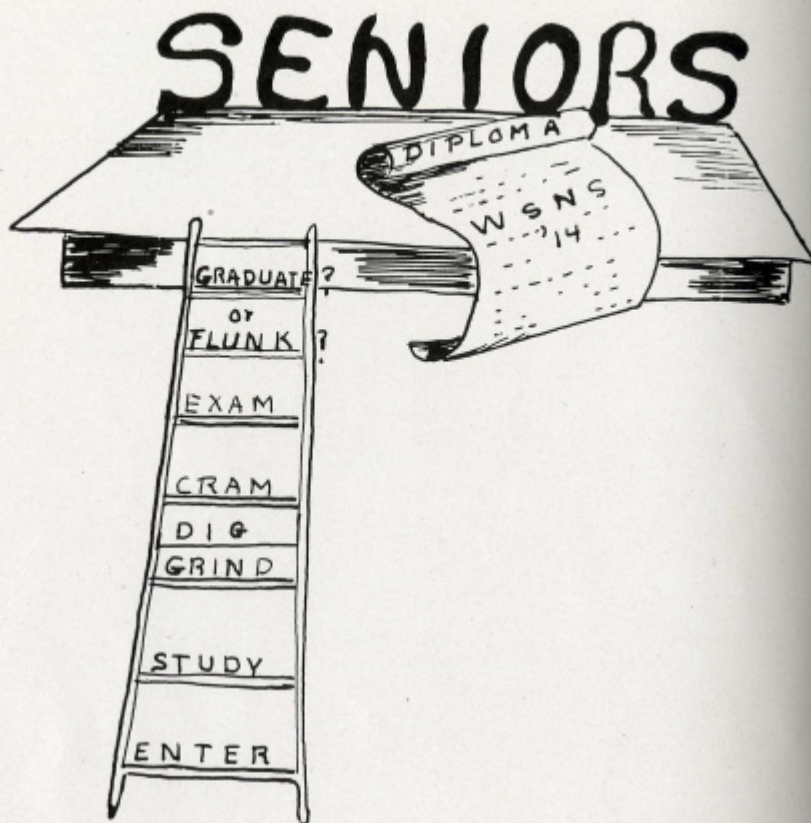 SENIORS
DIPLOMA
WSNS
'14
GRADUATE?
or
FLUNK?
EXAM
CRAM
DIG
GRIND
STUDY
ENTER